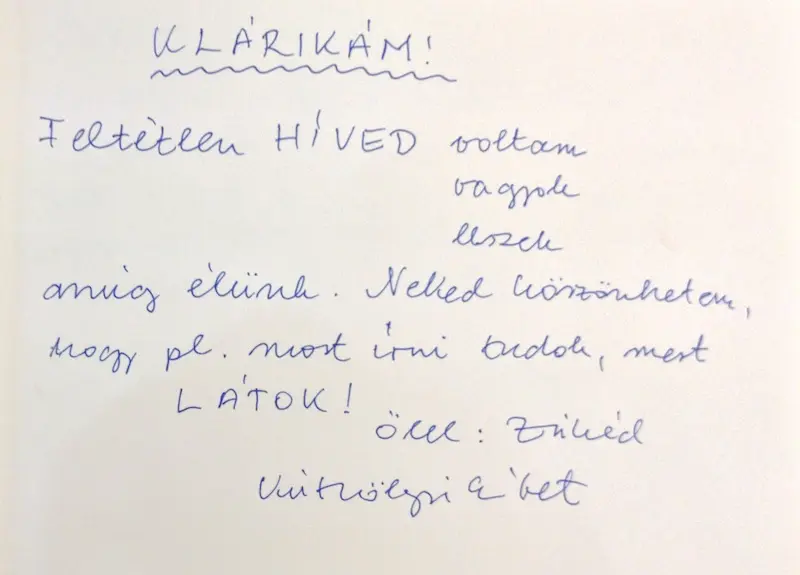 KLÁRIKÁM!
Feltétlen HÍVED voltam
vagyok
leszek
amíg élünk. Neked köszönhetem,
hogy pl. most írni tudok, mert
LÁTOK!
Ölel:
Kútvölgyi